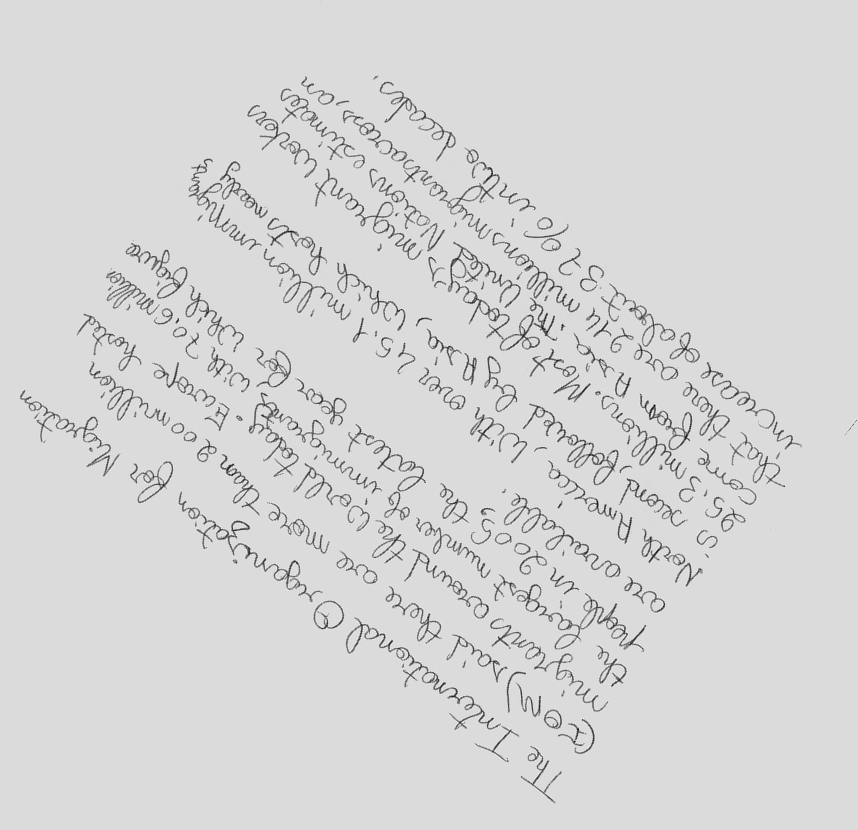 The International Organization for Migration
(IOM) said there are more than 200 million
migrants around the world today. Europe hosted
the largest number of immigrants, with 70.6 million
people in 2005, the latest year for which figure
are available.
North America, with over 45.1 million immigrants
is second, followed by Asia, which hosts nearly
25.3 millions. Most of today's migrant workers
come from Asia. The United Nations estimates
that there are 214 millions migrants across, an
increase of about 37% in two decades.